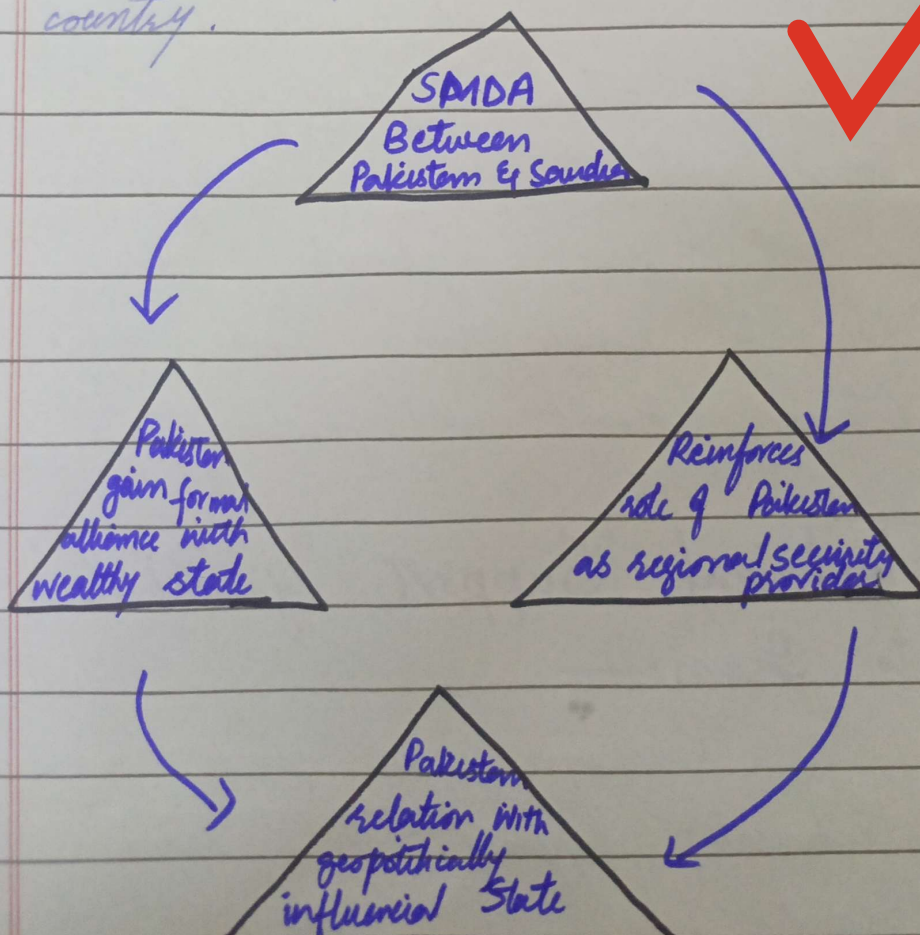 country.
SMDA
Between
Pakistan & Saudia
Pakistan
gain formal
alliance with
wealthy state
Reinforces
role of Pakistan
as regional security
provider
Pakistan
relation with
geopolitically
influencial State